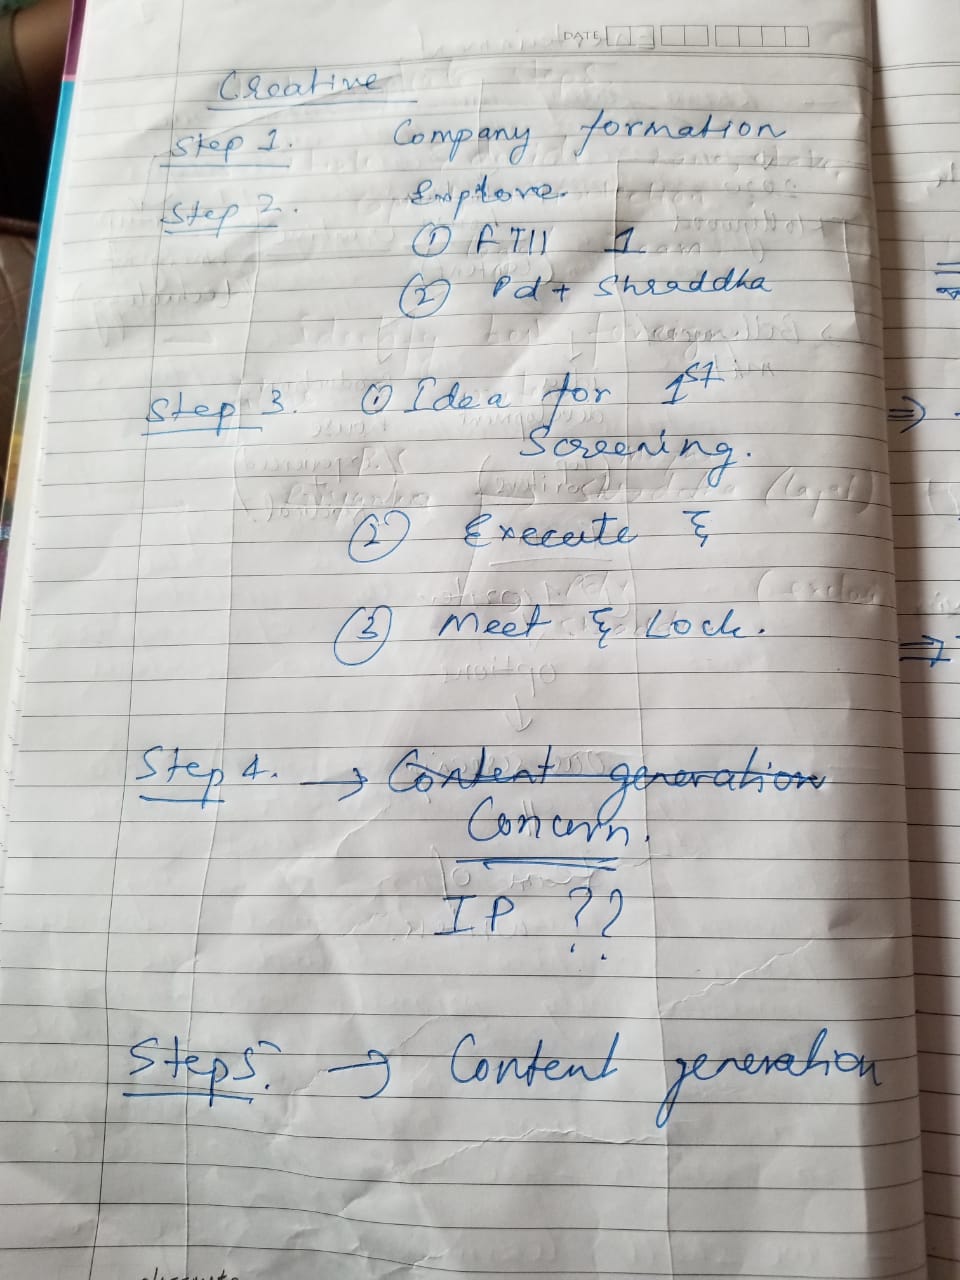 DATE
Creative
Step 1. Company formation
Step 2. Explore.
① FTII 1
② Pd + Shraddha
Step 3. ① Idea for 1st
Screening.
② Execute &
③ Meet & Lock.
Step 4. → Content generation
Concern.
IP ??
Step 5. → Content generation